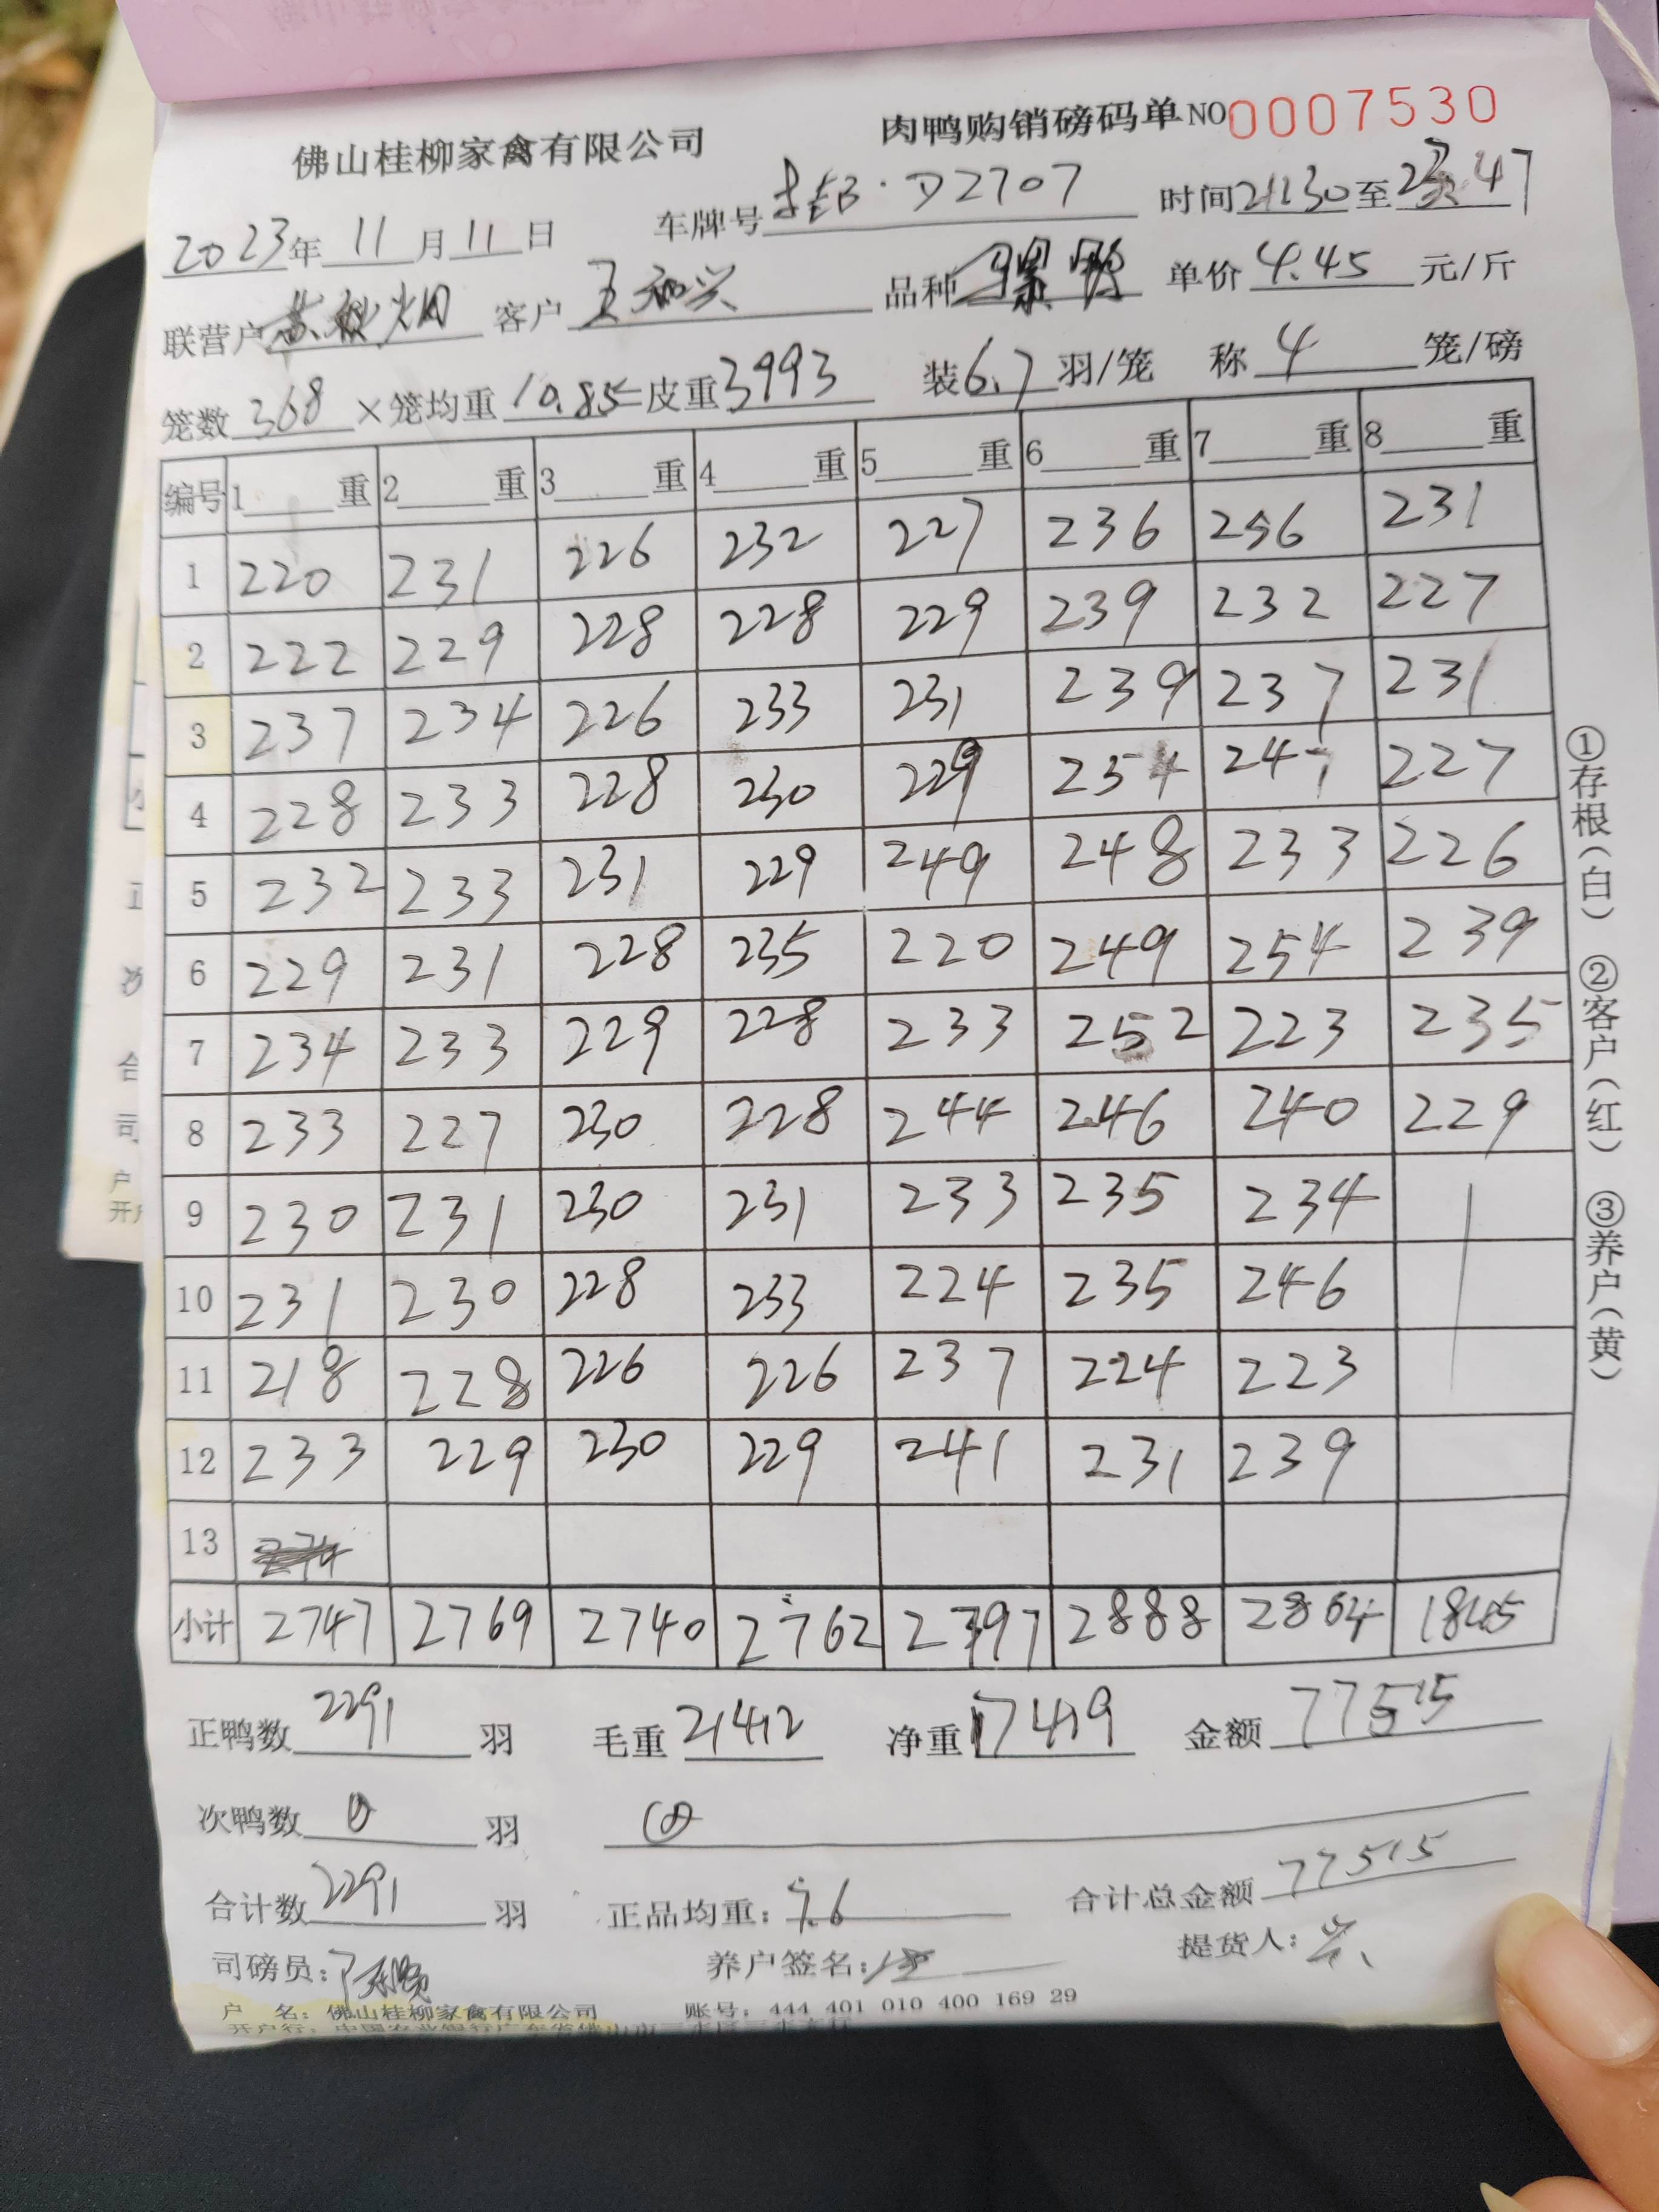 佛山桂柳家禽有限公司 肉鸭购销磅码单 NO 0007530
2023年 11 月 11 日 车牌号 D2707 时间 21:30 至 47
联营户 客户 王 兴 品种 单价 4.45 元/斤
笼数 368 ×笼均重 10.85 =皮重 3993 装 6.7 羽/笼 称 4 笼/磅
编号 1 重 2 重 3 重 4 重 5 重 6 重 7 重 8 重
1 220 231 226 232 227 236 256 231
2 222 229 228 228 229 239 232 227
3 237 234 226 233 231 239 237 231
4 228 233 228 230 229 254 247 227
5 232 233 231 229 249 248 233 226
6 229 231 228 235 220 249 254 239
7 234 233 229 228 233 252 223 235
8 233 227 230 228 244 246 240 229
9 230 231 230 231 233 235 234
10 231 230 228 233 224 235 246
11 218 228 226 226 237 224 223
12 233 229 230 229 241 231 239
13
小计 2747 2769 2740 2762 2797 2888 2864 1845
正鸭数 2291 羽 毛重 21412 净重 17419 金额 77515
次鸭数 0 羽
合计数 2291 羽 正品均重: 7.6 合计总金额 77515
司磅员: 养户签名: 提货人: 兴
户 名: 佛山桂柳家禽有限公司 账号: 444 401 010 400 169 29
开户行:
①存根(白) ②客户(红) ③养户(黄)